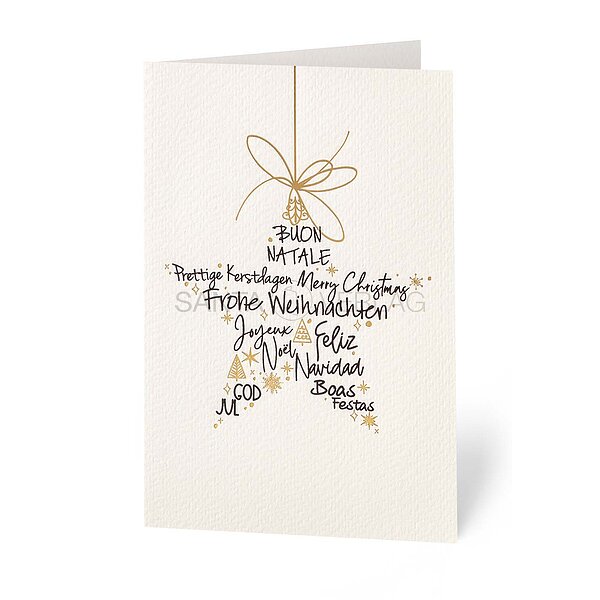 BUON
NATALE
Prettige Kerstdagen Merry Christmas
Frohe Weihnachten
Joyeux Feliz
Noël Navidad
GOD Boas
JUL Festas